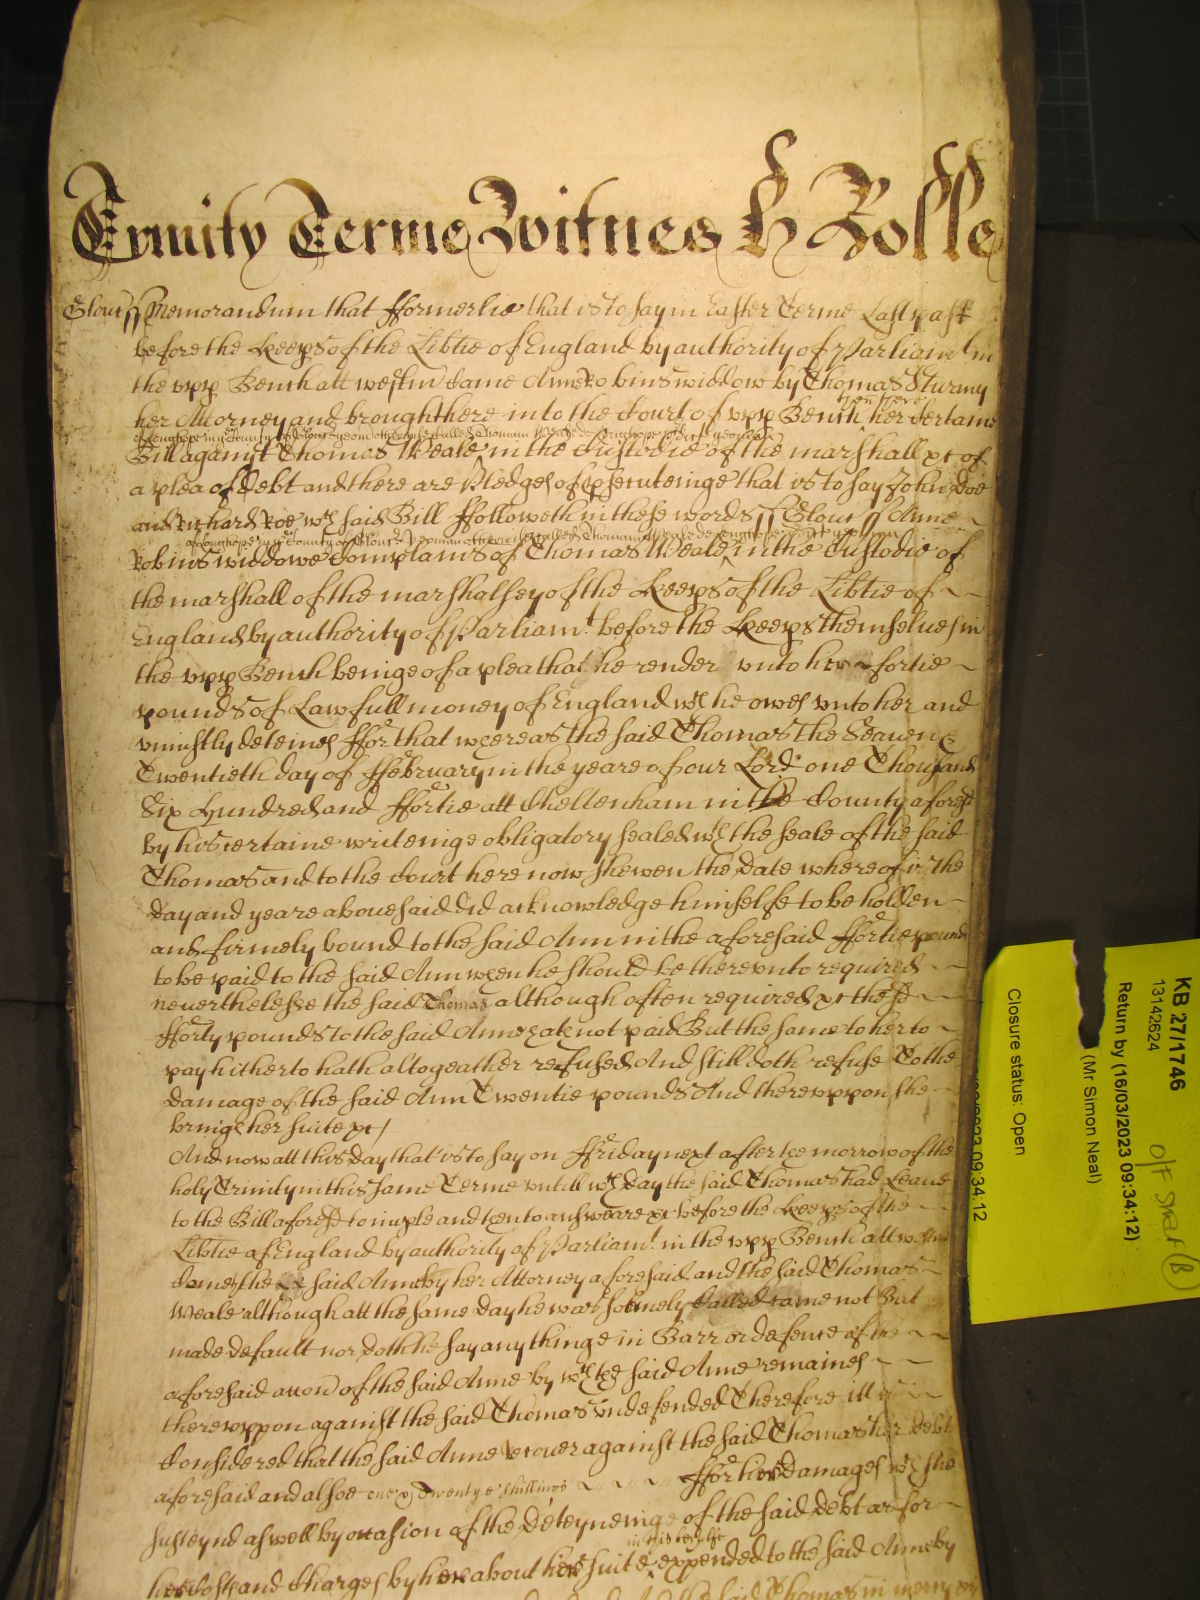 Trinity Terme Witnes H Rolle
Glouc ss Memorandum that fformerlie that is to say in Easter Terme Last past
before the keeps of the Libtie of England by authority of Parliamt in
the upp Bench att westm Came Anne Robins widdow by Thomas Sturmy
her Attorney and brought here into the Court of upp Bench then there her Certaine
of Longhope in ye County of Glouc yeom otherwise called Thomam Weale de Longhope
Bill against Thomas Weale in the Custodie of the marshall &c of
a plea of debt and there are Pledges of psecuteinge that is to say John Doe
and Richard Roe wch said Bill ffolloweth in these words ss Glouc ss Anne
of Longhope in ye County of Glouc Yeoman otherwise called Thomam Weale de Longhope
Robins widdowe Complains of Thomas Weale in the Custodie of
the marshall of the marshalsey of the keeps of the Libtie of
England by authority of Parliamt before the keeps themselves in
the upp Bench beinge of a plea that he render unto her fortie
pounds of Lawfull money of England wch he owes unto her and
uniustly deteines ffor that whereas the said Thomas the Seaven &
Twentieth day of ffebruary in the yeare of our Lord one Thousand
Six Hundred and ffortie att Cheltenham in the County aforesd
by his certaine writeinge obligatory sealed wth the seale of the said
Thomas and to the Court here now shewen the Date whereof is the
day and yeare abovesaid did acknowledge himselfe to be holden
and firmely bound to the said Ann in the aforesaid ffortie pounds
to be paid to the said Ann when he should be thereunto required
neverthelesse the said Thomas although often required &c the sd
fforty pounds to the said Anne hath not paid But the same to her to
pay hitherto hath altogeather refused And still doth refuse To the
damage of the said Ann Twentie pounds And thereuppon she
bringe her suite &c/
And now att this Day that is to say on ffriday next after the morrow of the
holy Trinity in this same Terme untill wch Day the said Thomas had Leave
to the Bill aforesd to imple and then to answeare &c before the keeps of the
Libtie of England by authority of Parliamt in the upp Bench att westm
Comes the said Anne by her Attorney aforesaid and the said Thomas
Weale although att the same day he was solemnely Called came not But
made default nor doth he say any thinge in Barr or defence of the
aforesaid accon of the said Anne by wch the said Anne remaines
thereuppon against the said Thomas undefended Therefore itt is
Considered that the said Anne recover against the said Thomas her Debt
aforesaid and alsoe one & Twentye shillings ffor her Damages wch she
susteynd aswell by occasion of the Deteyneinge of the said Debt as for
in this behalfe
her Costs and Charges by her about her suite expended to the said Anne by
the said Thomas in mercy
KB 27/1746
13142624
Return by (16/03/2023 09:34:12)
(Mr Simon Neal)
Closure status: Open
2023 09:34:12